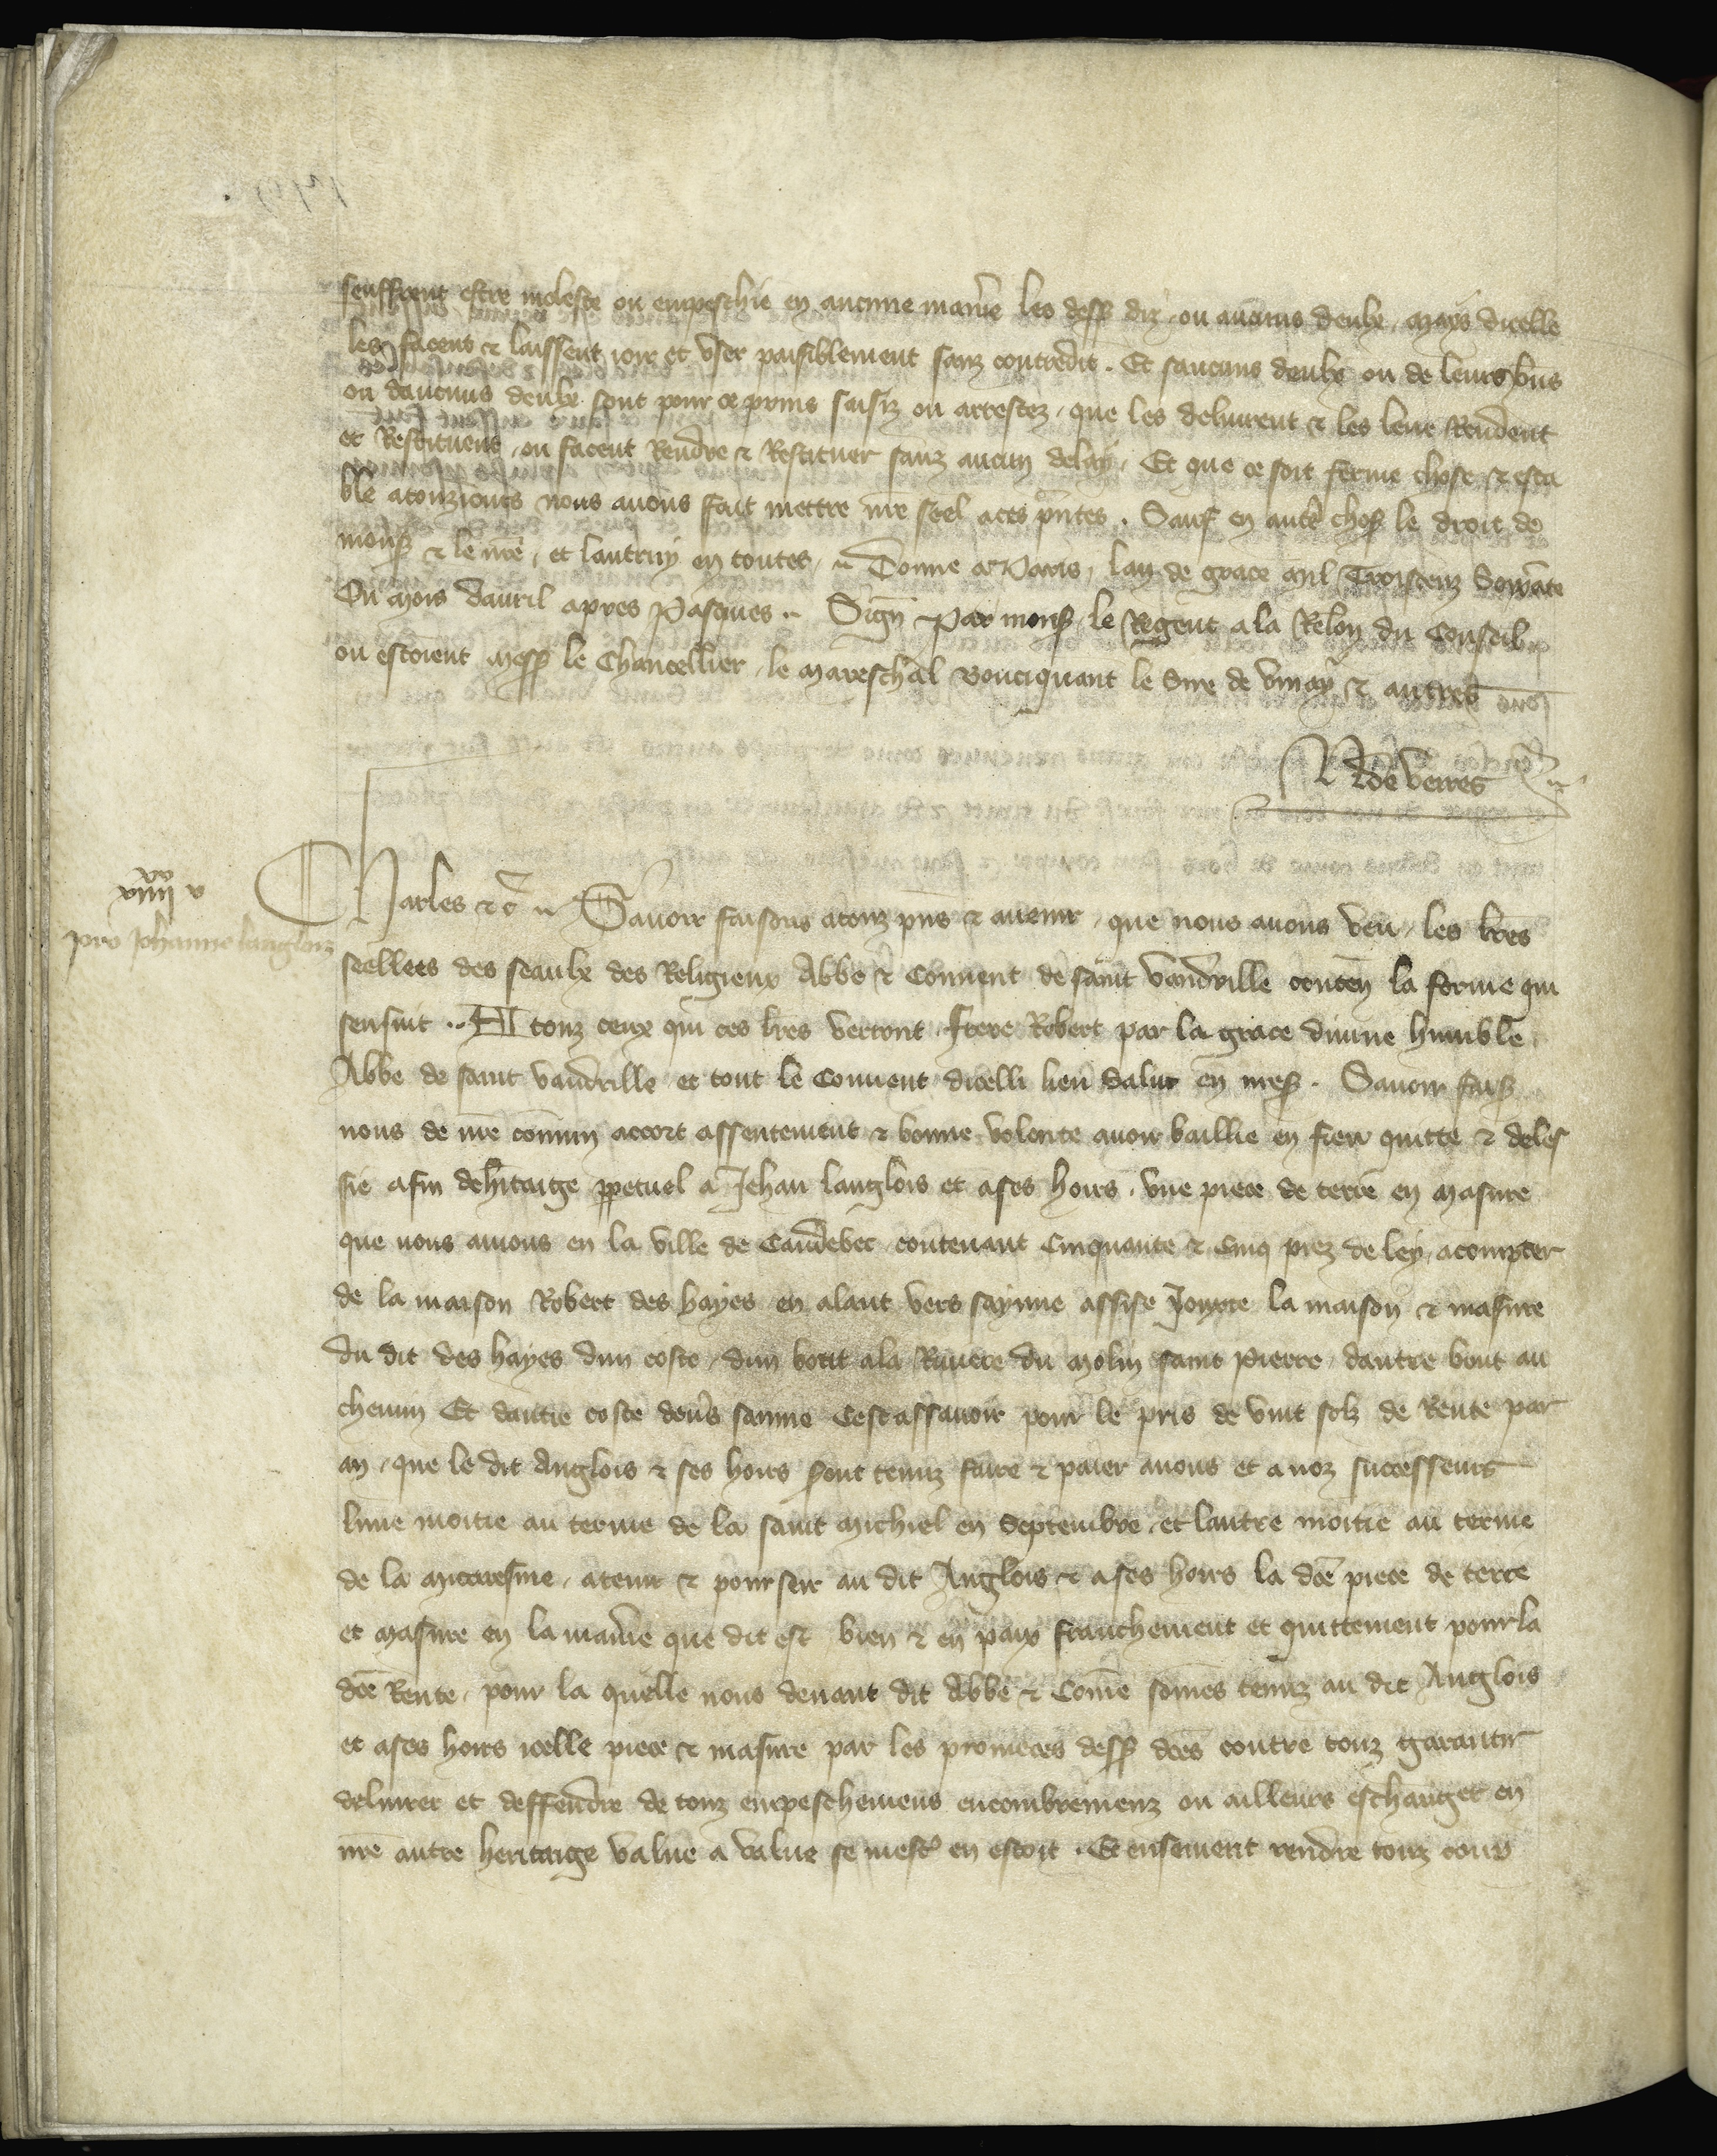 seuffrent estre moleste ou empeschie en aucune maniẽ les dessus diz ou aucuns deulx mays dicelle
les facent & laissent ioir et user paisiblement sanz contredit. Et saucuns deulx ou de leurs bñs
ou daucuns deulx sont pour ce prins saisiz ou arrestez, que les delivrent & les leur Rendent
et Restituent, ou facent Rendre & Restituer sanz aucun delay. Et que ce soit ferme chose & esta
ble atouziours nous avons fait mettre nr̃e seel aces pñtes. Sauf en autr̃ choses le droit de
mons̃ & le nr̃e, et lautruy en toutes. Donne a Paris, lan de grace mil Troiscenz Soixãte
Ou mois davril apres Pasques. Sigñ Par mons̃ le Regent a la Relõn du Conseil
ou estoient mess̃ le Chancellier, le mareschal Bouciquaut le Sire de vinay & autres
N de veires
xiiii v
pro Johanne langlois
Charles &c̃ Savoir faisons atouz pñs & avenir, que nous avons veu les lr̃es
seellees des seaulx des Religieux Abbe & Convent de saint vandrille conteñ la forme qui
sensuit. A touz ceux qui ces lr̃es verront frere Robert par la grace divine humble
Abbe de saint vandrille et tout le Convent dicelli lieu salut en nr̃es̃. Savoir fais̃
nous de nr̃e cõmun accort assentement & bonne volente avoir baillie en fieu quitte & deles
sie afin deh̃itaige p̱petuel a Jehan langlois et ases hoirs, une piece de terre en masure
que nous avions en la ville de Caudebec contenant Cinquante & Cinq piez de ley acompter
de la maison Robert des hayes en alant vers saynne assise Jouxte la maison & masure
du dit des hayes dun coste, dun bout ala Riviere du molin saint Pierre, dautre bout au
chemin Et dautre coste dev̑s sainne Cest assavoir pour le pris de vint solz de Rente par
an, que le dit Anglois & ses hoirs sont tenuz faire & paier anous et a noz successeurs
lune moitie au terme de la saint michiel en Septembre, et lautre moitie au terme
de la micaresme, atenir & pourseir au dit Anglois & ases hoirs la dc̃e piece de terre
et masure en la maniẽ que dit est bien & en paix franchement et quittement pour la
dc̃e Rente, pour la quelle nous devant dit Abbe & Conv̑e sõmes tenuz au dit Anglois
et ases hoirs icelle piece & masure par les promeces dess̃ dc̃es contre touz garantir
delivrer et deffendre de touz empeschemens encombremenz ou ailleurs eschanger en
nr̃e autre heritaige value a value se mest̑ en estoit. Et ensement rendre touz couz